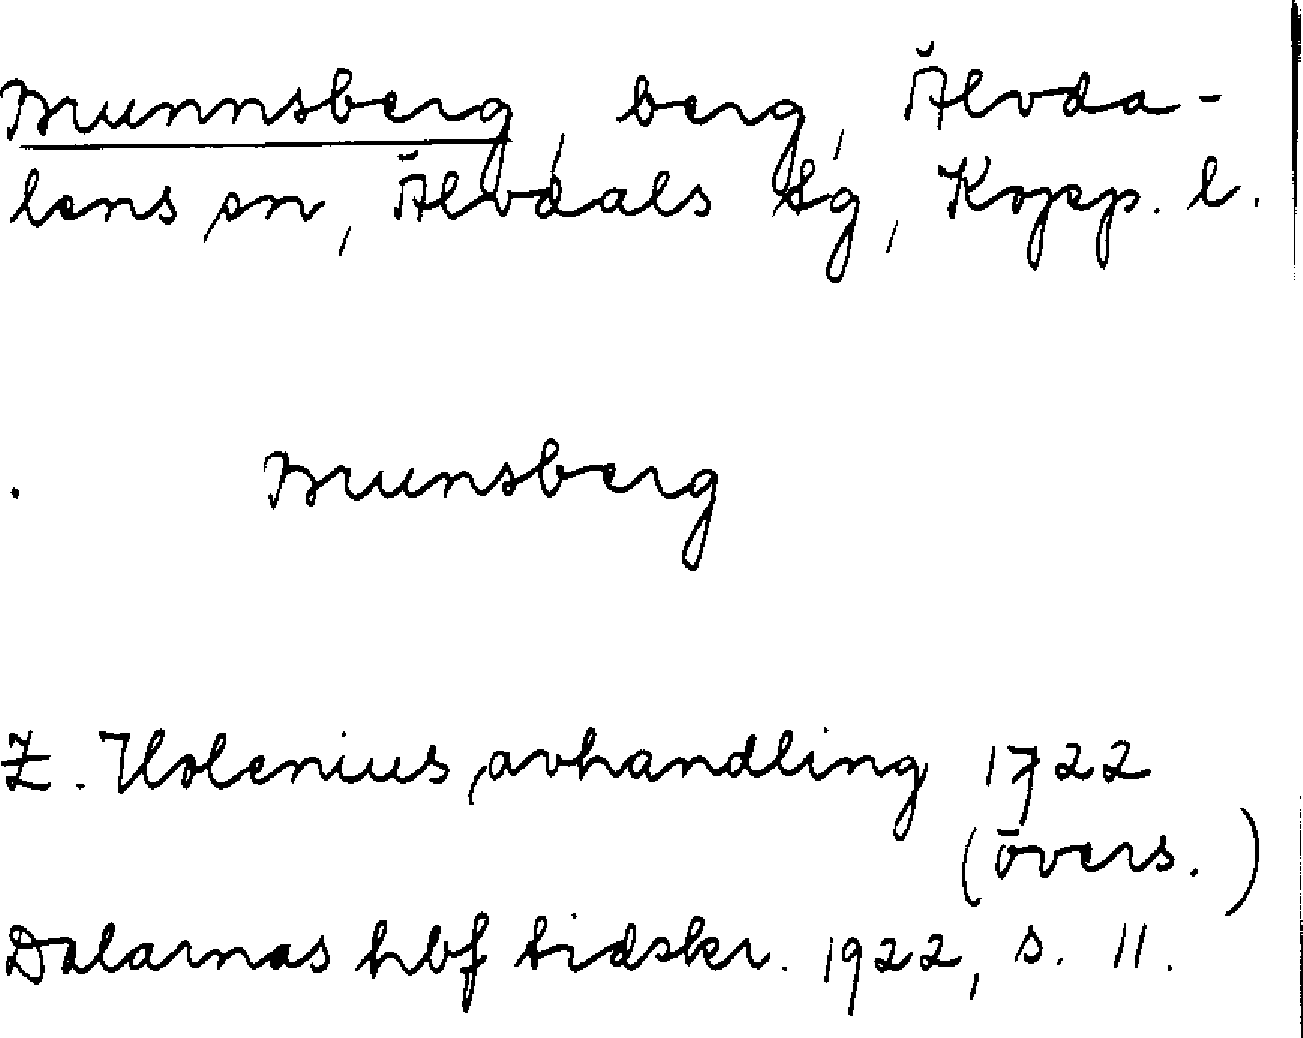 Brunnsberg, berg, Älvda-
lens sn, Älvdals tg, Kopp. l.
Brunsberg
Z. Holenius, avhandling 1722
(övers.)
Dalarnas hbf tidskr. 1922, s. 11.